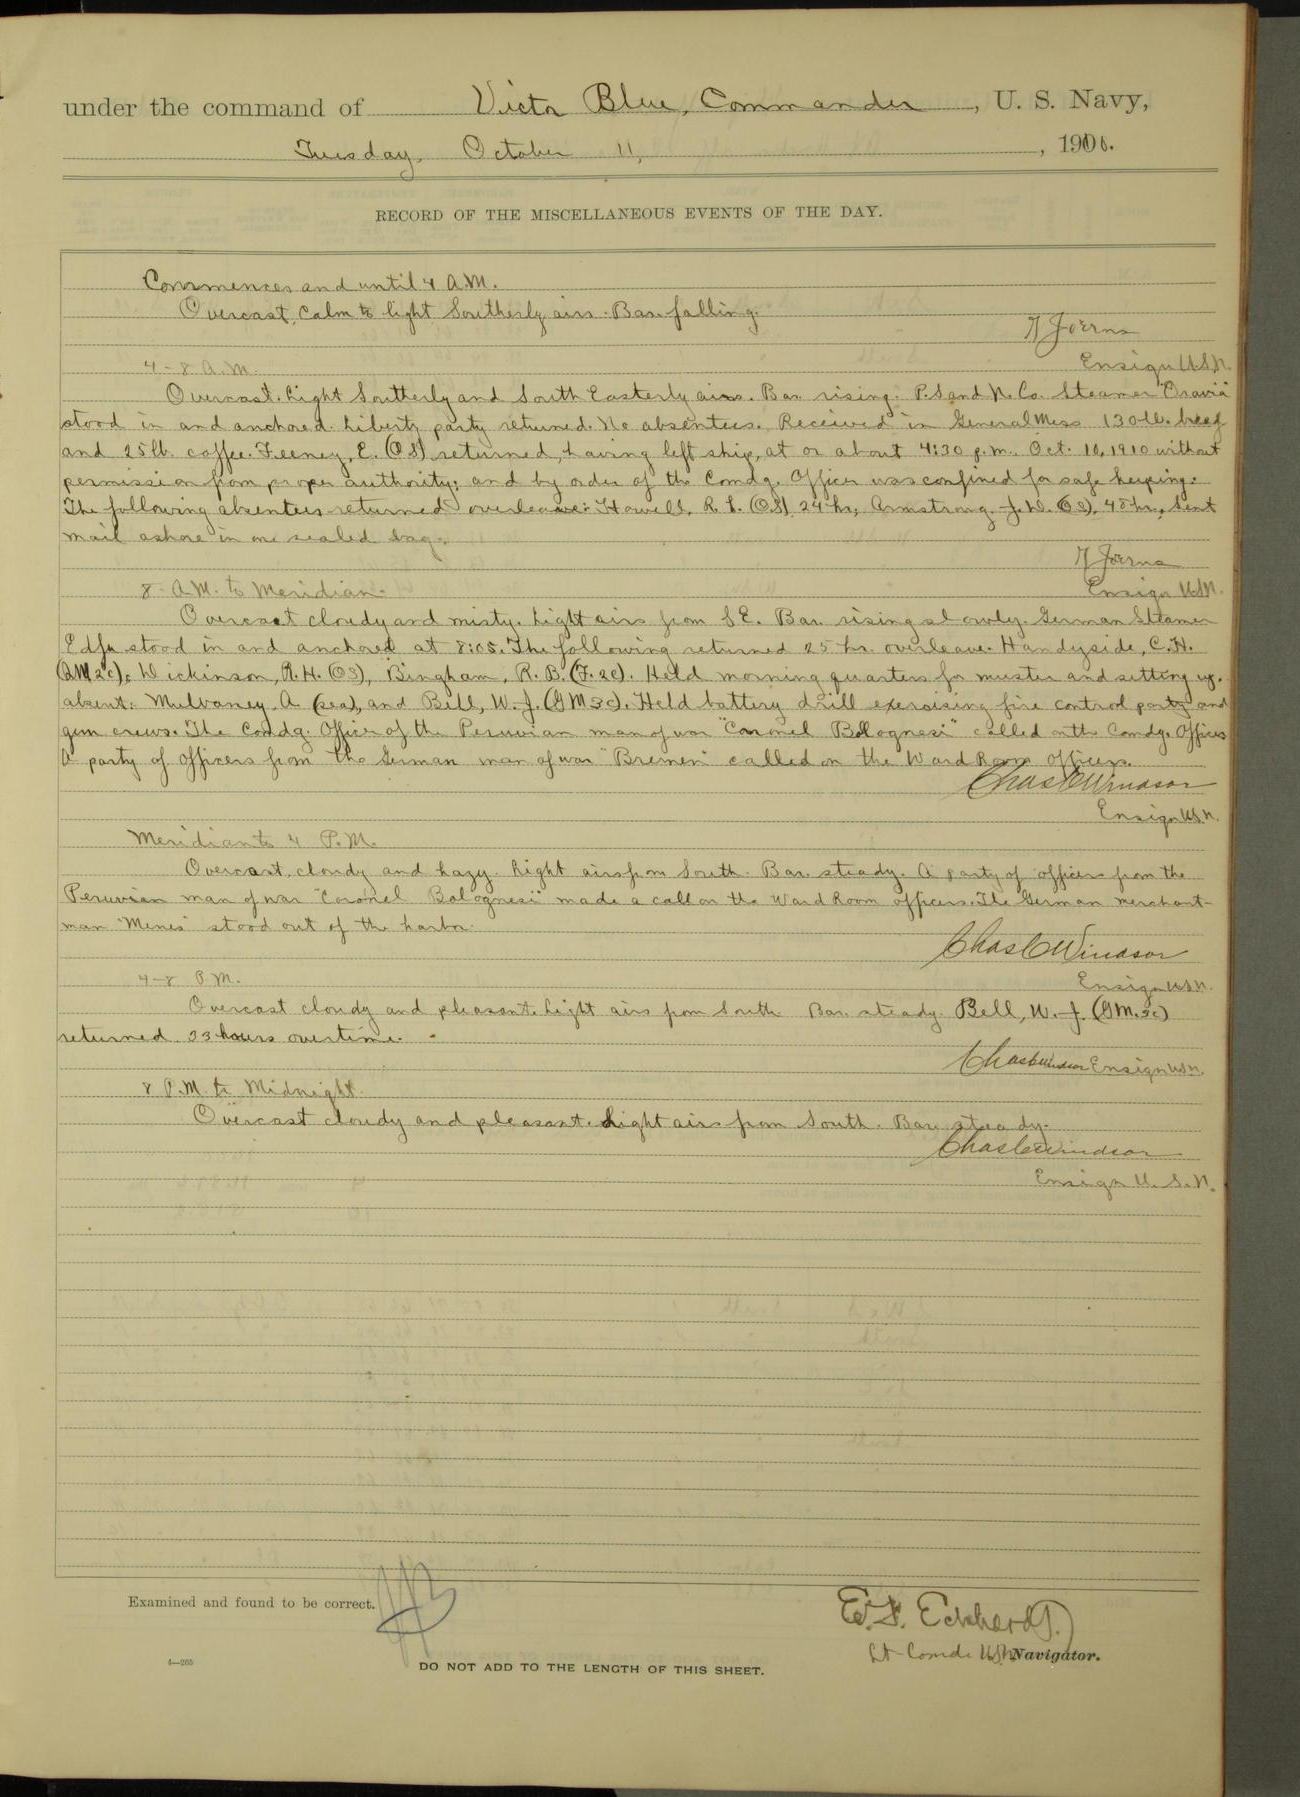 under the command of Victor Blue, Commander, U. S. Navy,
Tuesday, October 11, 1910.
RECORD OF THE MISCELLANEOUS EVENTS OF THE DAY.
Commences and until 4 A.M.
Overcast. Calm to light Southerly airs. Bar. falling.
Joerns
Ensign U.S.N.
4-8 A.M.
Overcast. Light Southerly and South Easterly airs. Bar. rising. P.S. and N. Co. Steamer "Oravia"
stood in and anchored. Liberty party returned. No absentees. Received in General Mess 130 lb. bread
and 25 lb. coffee. Feeney, E. (OS) returned, having left ship, at or about 4:30 p.m. Oct. 10, 1910 without
permission from proper authority; and by order of the Comdg. Officer was confined for safe keeping.
The following absentees returned overleave: Howell, R. L. (OS) 24 hrs, Armstrong J. W. (OS), 48 hrs, Sent
mail ashore in one sealed bag.
Joerns
Ensign U.S.N.
8 A.M. to Meridian.
Overcast cloudy and misty. Light airs from S E. Bar. rising slowly. German Steamer
Edfu stood in and anchored at 8:05. The following returned 25 hr. overleave. Handyside, C. H.
2c), Dickinson, R. H. (OS), Bingham, R. B. (F. 2c). Held morning quarters for muster and setting up.
absent: Mulvaney A (sea), and Bell, W. J. (GM 3c). Held battery drill exercising fire control party and
gun crews. The Comdg. Officer of the Peruvian man of war "Coronel Bolognesi" called on the Comdg. Officer
A party of officers from the German man of war "Bremen" called on the Ward Room officers.
Chas C Windsor
Ensign U.S.N.
Meridian to 4 P.M.
Overcast, cloudy and hazy. Light airs from South. Bar. steady. A party of officers from the
Peruvian man of war "Coronel Bolognesi" made a call on the Ward Room officers. The German merchant-
man "Menes" stood out of the harbor.
Chas C Windsor
Ensign U.S.N.
4-8 P.M.
Overcast cloudy and pleasant. Light airs from South. Bar. steady. Bell, W. J. (GM. 3c)
returned 33 hours overtime.
Chas C Windsor Ensign U.S.N.
8 P.M. to Midnight.
Overcast cloudy and pleasant. Light airs from South. Bar. steady.
Chas C Windsor
Ensign U. S. N.
Examined and found to be correct.
E. F. Eckhardt
Lt-Comdr U.S.N. Navigator.
4—265
DO NOT ADD TO THE LENGTH OF THIS SHEET.